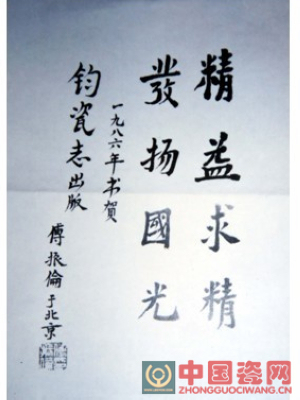 精益求精
發扬國光
一九八六年书贺
钧瓷志出版
傅振倫于北京
中国瓷网
ZHONGGUOCIWANG.COM